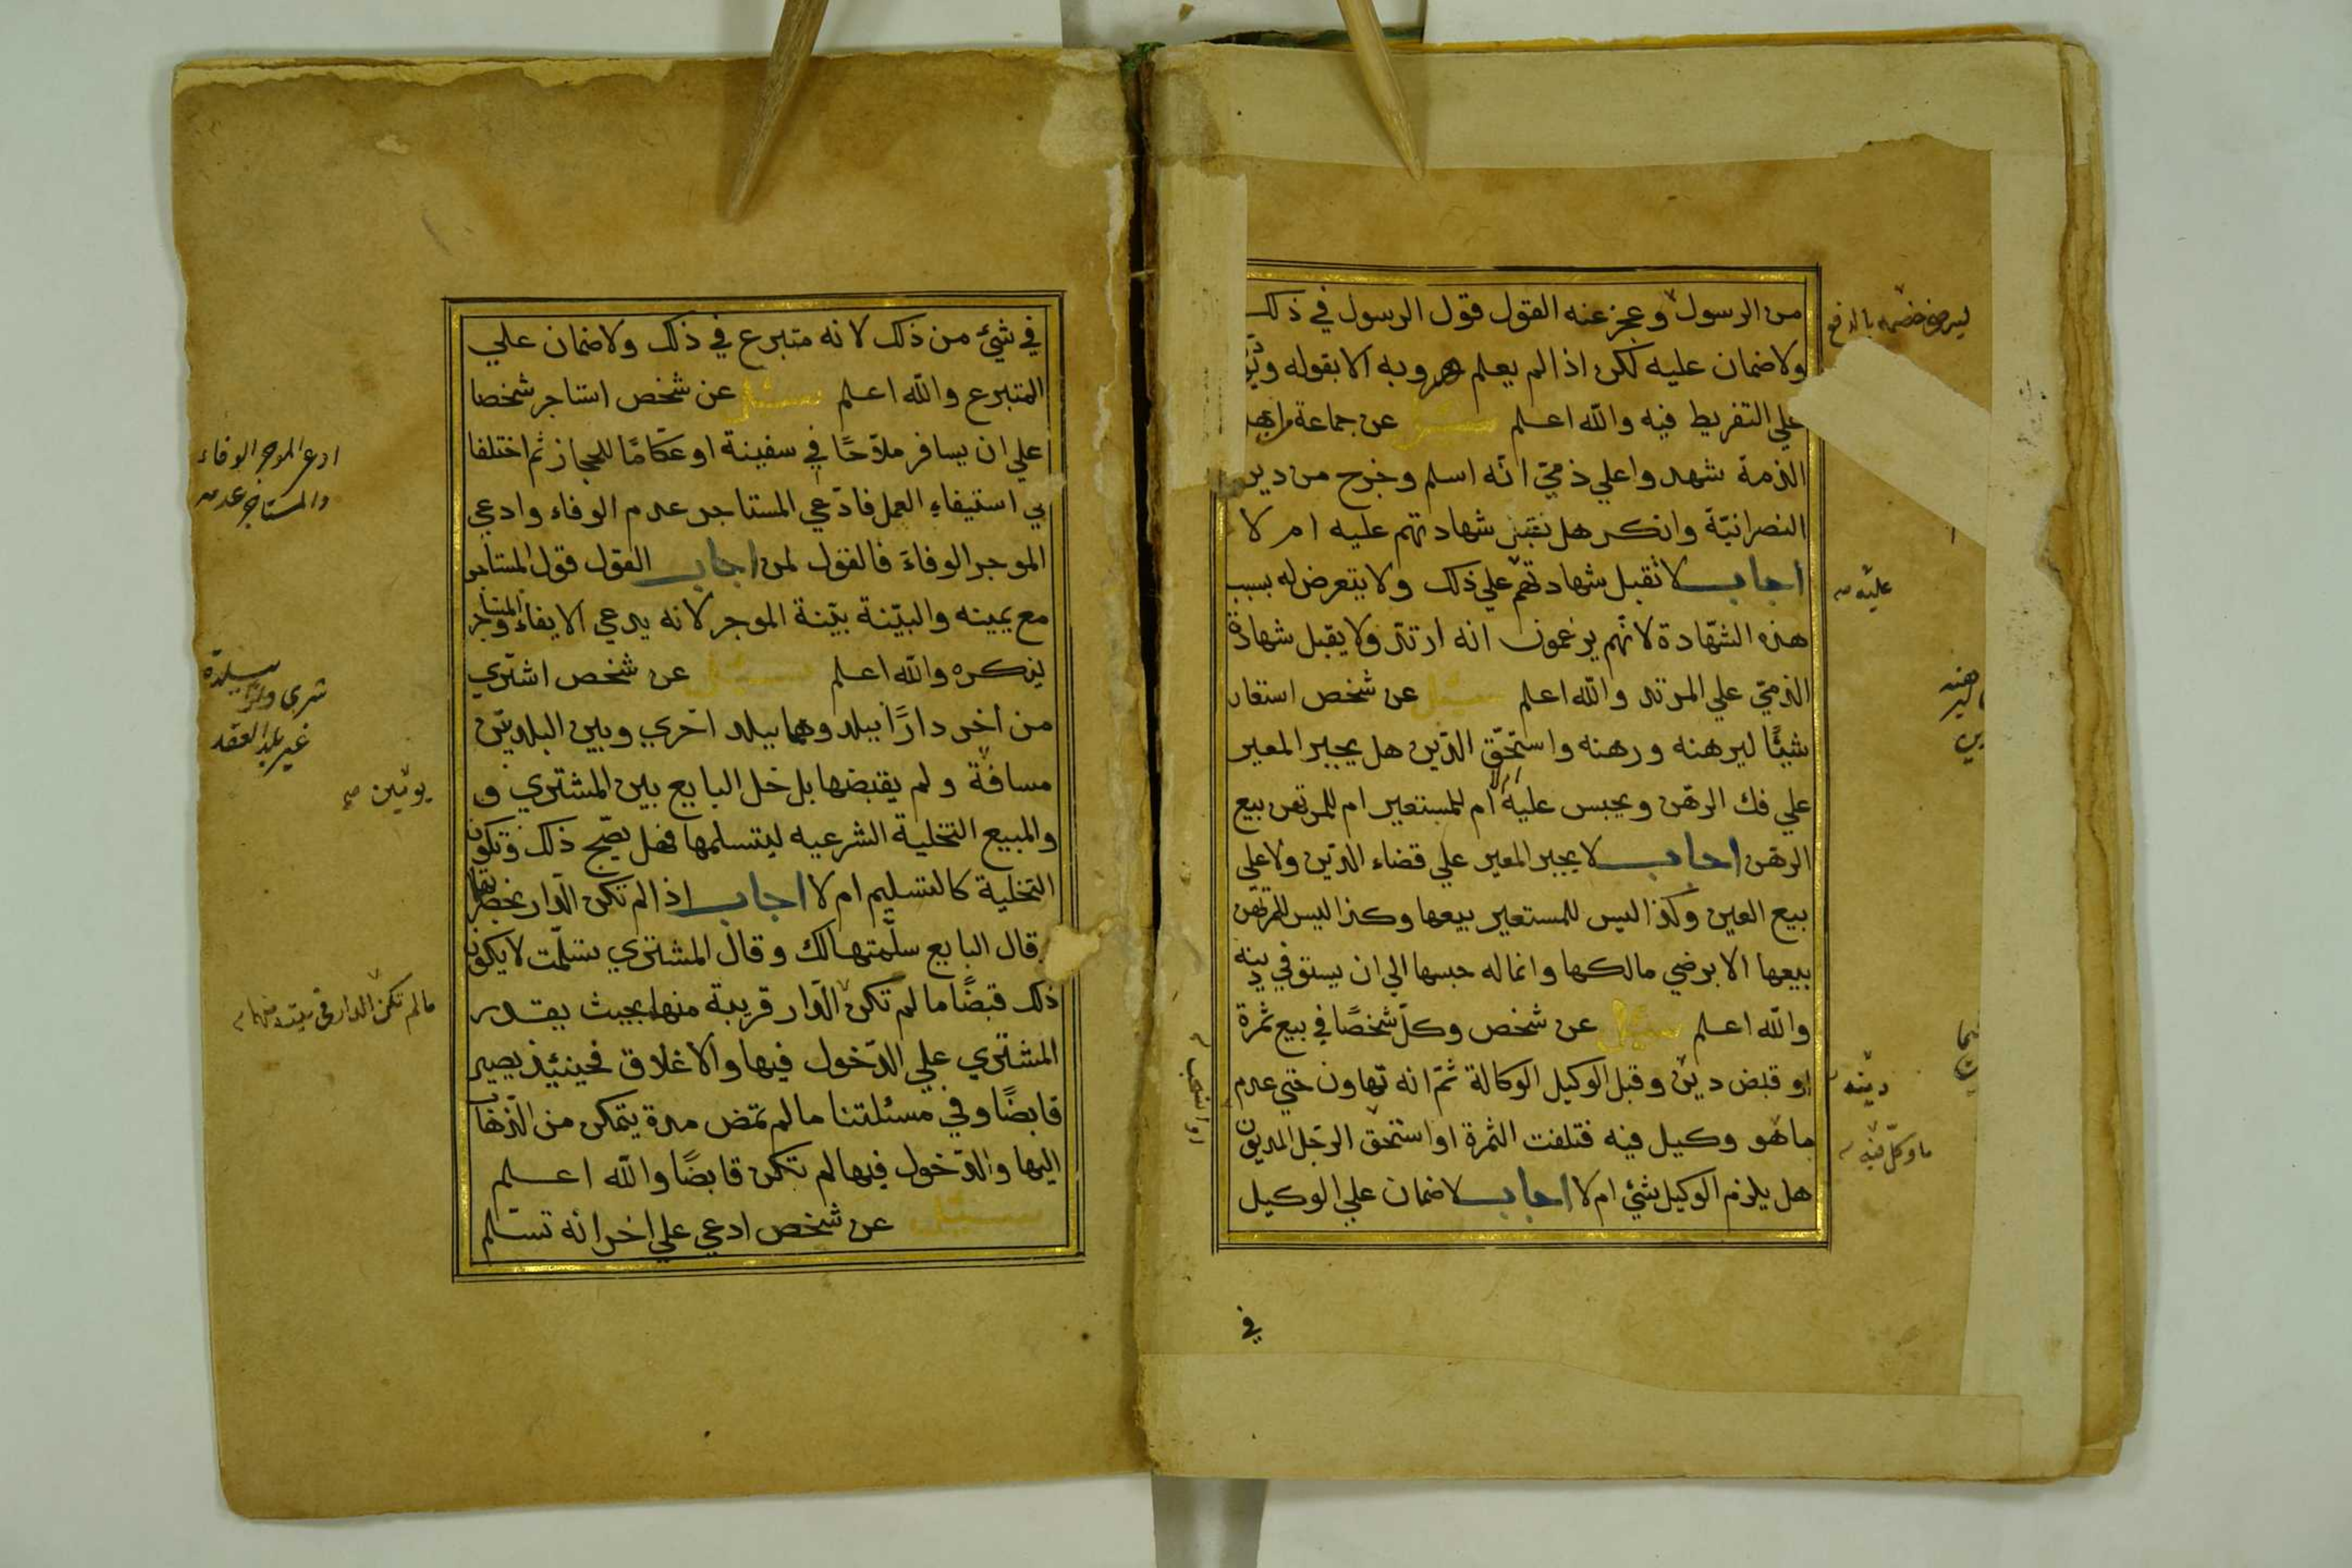 من الرسول وعجز عنه القول قول الرسول في ذلك
ولاضمان عليه لكن اذا لم يعلم هروبه الا بقوله
علي التفريط فيه والله اعلم سئل عن جماعة من اهل
الذمة شهدوا علي ذمّي انّه اسلم وخرج من دين
النصرانيّة وانكر هل تقبل شهادتهم عليه ام لا
اجاب لا تقبل شهادتهم علي ذلك ولا يتعرض له بسبب
هذه الشّهادة لانّهم يزعمون انه ارتدّ ولا يقبل شهادة
الذمّي علي المرتد والله اعلم سئل عن شخص استعار
شيئًا ليرهنه ورهنه واستحّق الدّين هل يجبر المعير
علي فك الرهن ويحبس عليه ام لا ام للمستعير ام للمرتهن بيع
الرهن اجاب لا يجبر المعير علي قضاء الدّين ولا علي
بيع العين وكذا ليس للمستعير بيعها وكذا ليس للمرتهن
بيعها الا برضي مالكها وانما له حبسها الي ان يستوفي دينه
والله اعلم سئل عن شخص وكلّ شخصًا في بيع ثمرة
او قبض دين وقبل الوكيل الوكالة ثمّ انه تهاون حتي عدم
ماهو وكيل فيه فتلفت الثمرة او استحق الرّجل المديون
هل يلزم الوكيل شئ ام لا اجاب لاضمان علي الوكيل
في
ليرضي خصمه بالدفع
عليه صح
دينه
ما وكلّ فيه
في شيئ من ذلك لانه متبرع في ذلك ولاضمان علي
المتبرع والله اعلم سئل عن شخص استاجر شخصا
علي ان يسافر ملاّحًا في سفينة او عكّامًا للحجاز ثم اختلفا
في استيفاءِ العمل فادّعي المستاجر عدم الوفاء وادعي
الموجر الوفاءَ فالقول لمن اجاب القول قول المستاجر
مع يمينه والبيّنة بيّنة الموجر لانه يدعي الايفاء والمستاجر
ينكره والله اعلم سئل عن شخص اشتري
من اخر دارًا ببلد وهما ببلد اخري وبين البلدين
مسافة ولم يقبضها بل خلى البايع بين المشتري و
والمبيع التخلية الشرعيه ليتسلمها فهل يصّح ذلك وتكون
التخلية كالتسليم ام لا اجاب اذا لم تكن الدّار بحضرتهما
وقال البايع سلّمتها لك وقال المشتري تسلّمت لا يكون
ذلك قبضًا ما لم تكن الدّار قريبة منها بحيث يقدر
المشتري علي الدّخول فيها والاغلاق فحينئذ يصير
قابضًا وفي مسئلتنا ما لم تمض مدة يتمكن من الذّهاب
اليها والدّخول فيها لم تكن قابضًا والله اعلم
سئل عن شخص ادعي علي اخر انه تسلم
ادعي الموجر الوفاء
والمستاجر عدمه
شرى دارًا ببلدة
غير بلد العقد
يومين صح